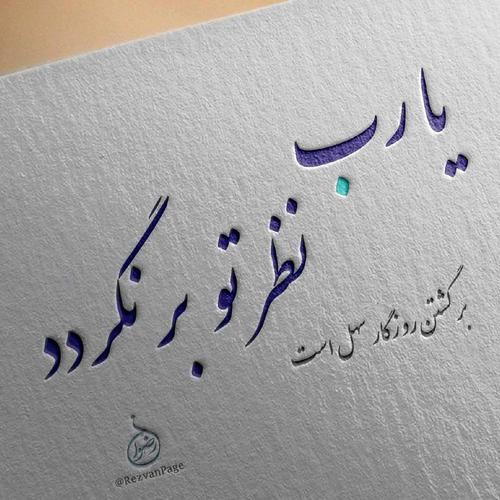 یا رب
نظر تو بر نگردد
برگشتن روزگار سهل است
رضوان
@RezvanPage